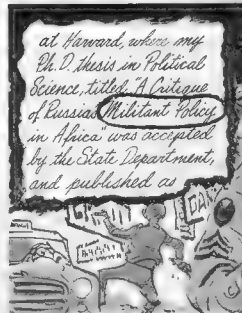 at Harvard, where my
Ph.D. thesis in Political
Science, titled "A Critique
of Russia's Militant Policy
in Africa" was accepted
by the State Department,
and published as
BANK